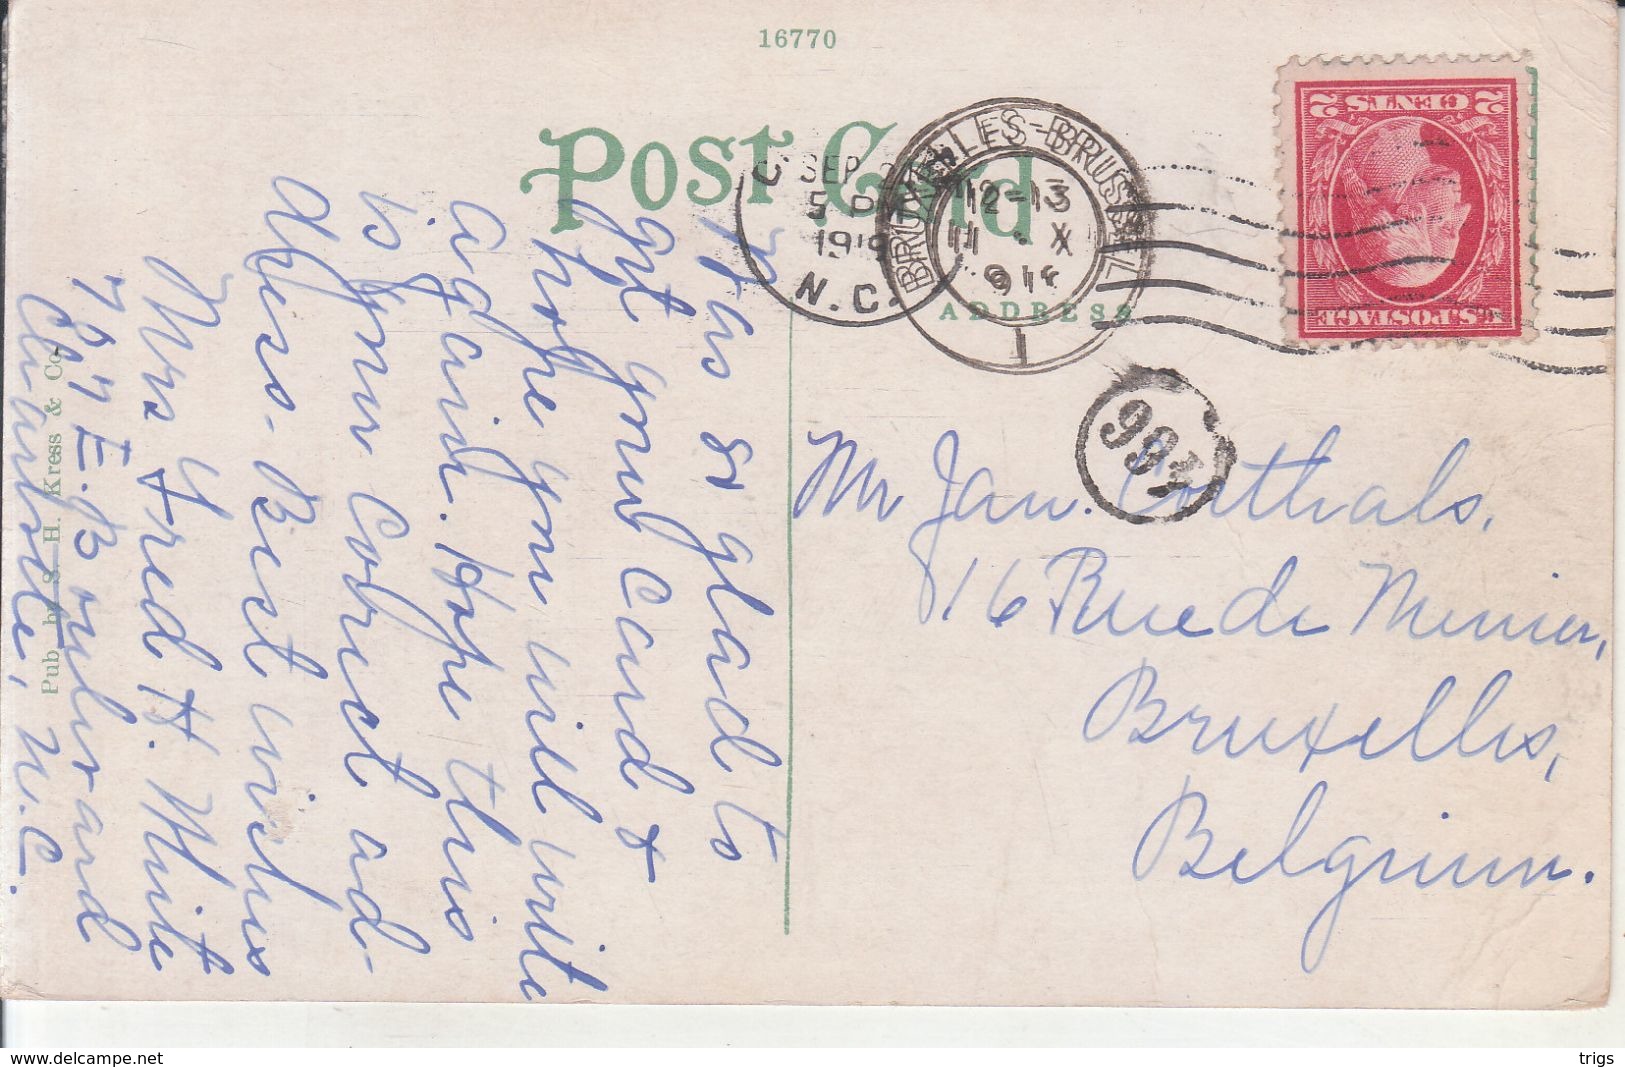 16770
Post Card
SEP
5 P
1919
N.C.
BRUXELLES-BRUSSEL
12-13
11 X
1
ADDRESS
2 CENTS 2
U.S. POSTAGE
Was so glad to
get your card &
hope you will write
again. Hope this
is your correct ad-
dress. Best wishes
Mrs Fred H. White
Charlotte, N.C.
Pub. by S. H. Kress & Co.
Mr Jan. Corthals,
16 Rue de Menier,
Bruxelles,
Belgium.
trigs
delcampe.net